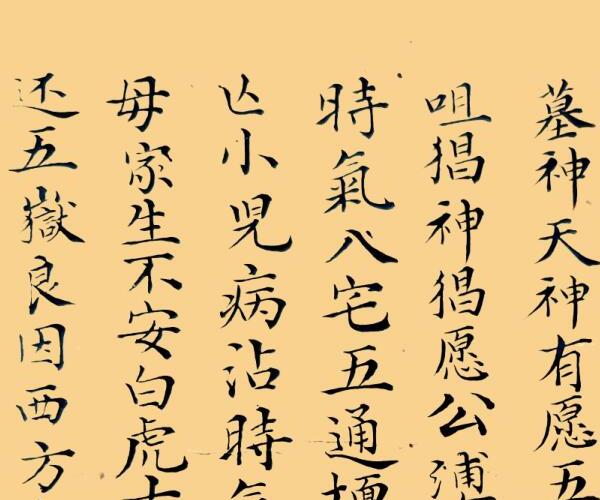 墓神天神有愿五
咀猖神猖愿公浦
時氣八宅五通壇
亡小児病沾時氣
毋家生不安白虎
还五嶽良因西方